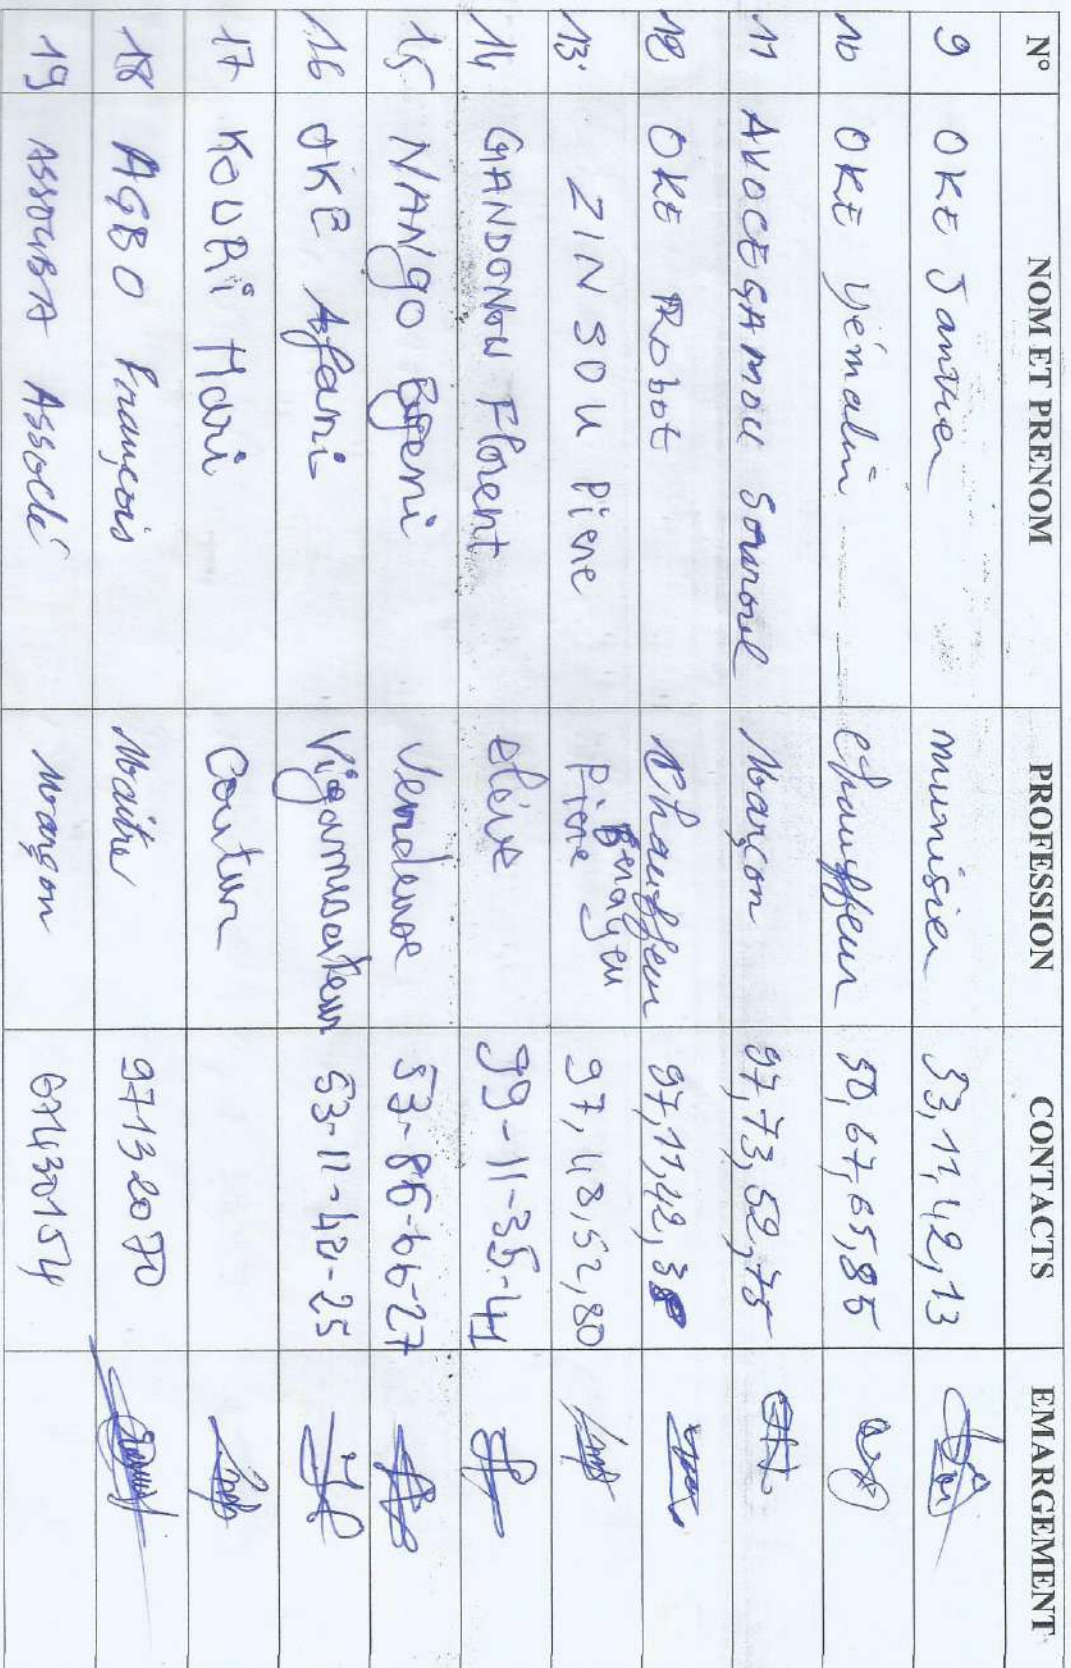 N° NOM ET PRENOM PROFESSION CONTACTS EMARGEMENT
9 OKE Janvier munisier 53,11,42,13
10 OKE Yémalin chauffeur 50,67,65,85
11 AKOCEGAMOU Sourouel Marçon 97,73,52,75
12 OKE Robot Chauffeur 97,11,42,38
13. ZINSOU Piere Piere 97,48,52,80
14 GANDONOU Florent élève 99-11-35-41
15 NANgo Bgeni Vendeuse 53-86-66-27
16 OKE Afani 53-11-40-25
17 KOURi Mari
18 AGBO François Maître 97132070
19 ASSOUBA Assoclé Marçon 67430154